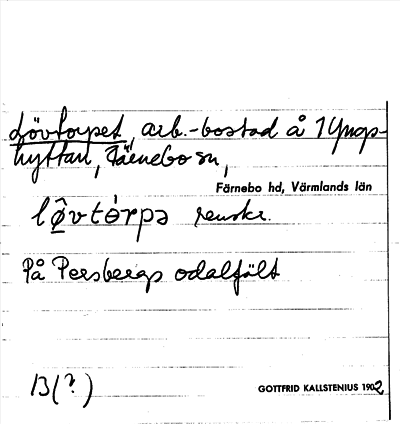 Lövtorpet, arb.-bostad å 1 Yngs-
hyttan, Färnebo sn,
Färnebo hd, Värmlands län
lô̱vtòrpə renskr.
På Persbergs odalfält
13(?)
GOTTFRID KALLSTENIUS 1902